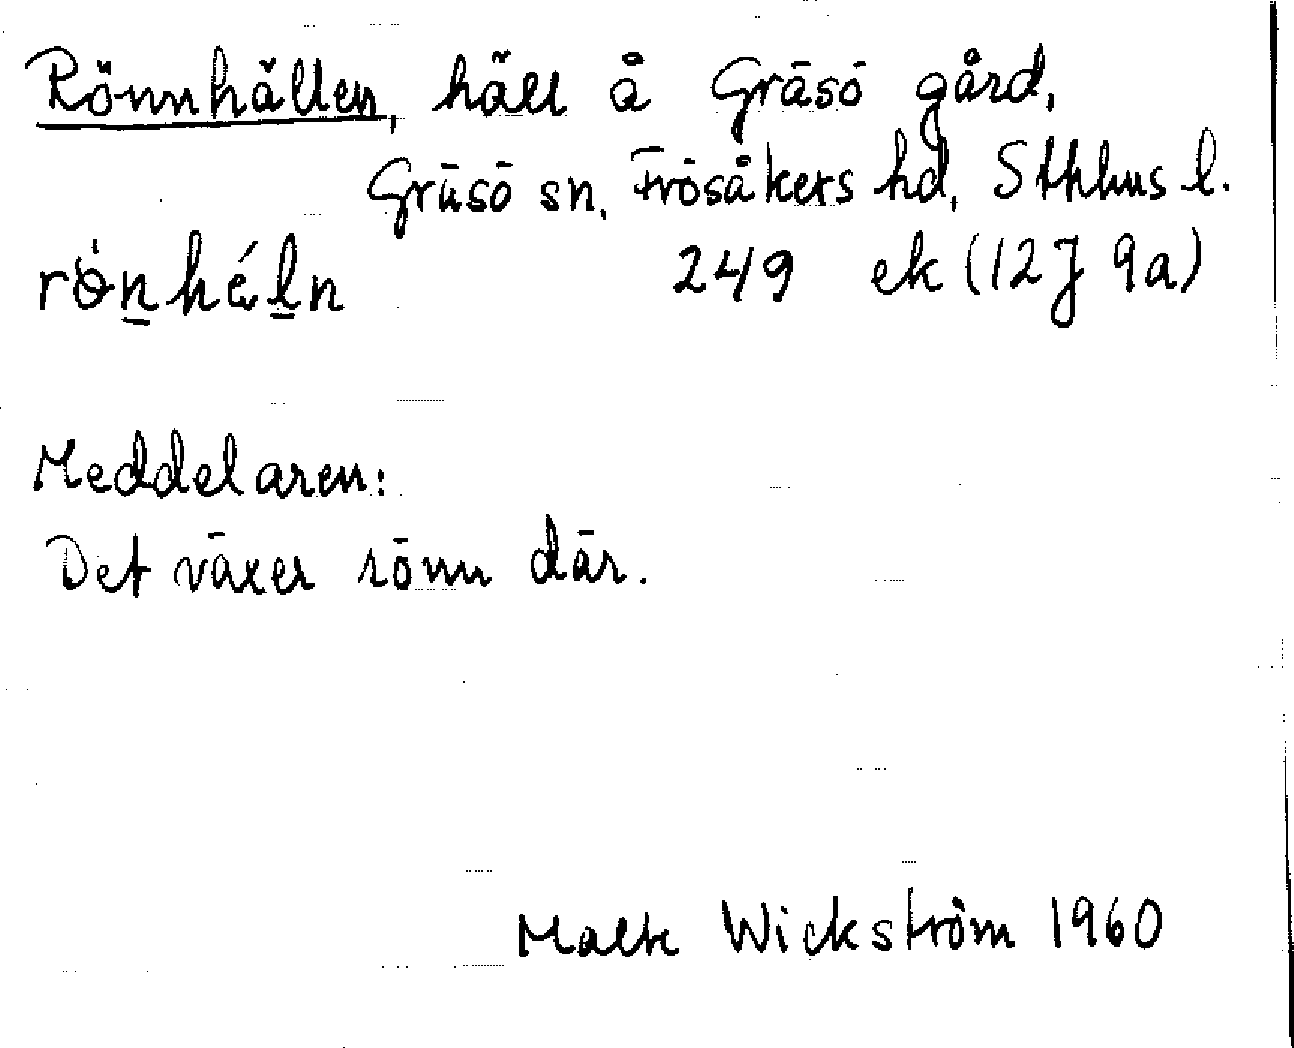 Rönnhällen, häll å Gräsö gård,
Gräsö sn, Frösåkers hd, Sthlms l.
rö̀n̲hél̲n 249 ek (12J 9a)
Meddelaren:
Det växer rönn där.
Malte Wickström 1960